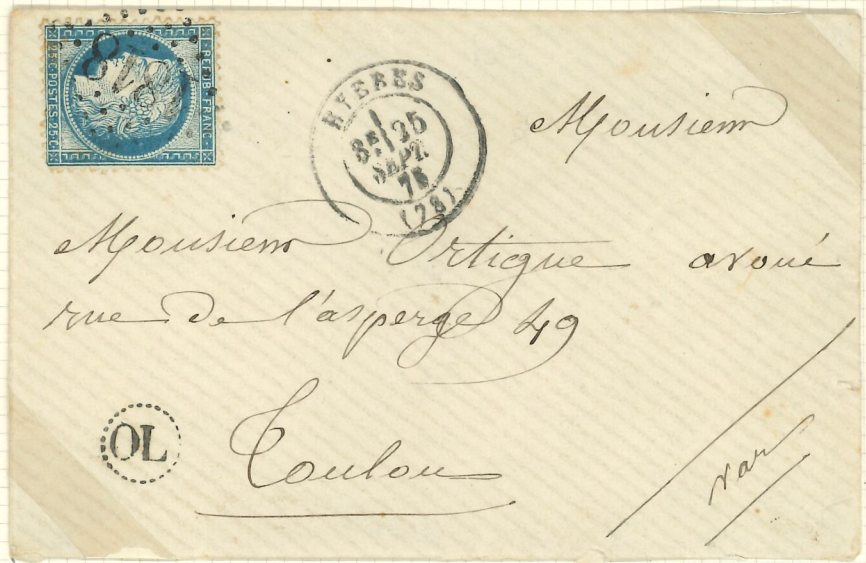 REPUB. FRANC.
25 c. POSTES. 25 c.
1878
HYERES
1
3E 25
SEPT.
75
(78)
Monsieur
Monsieur Ortigue avoué
rue de l'asperge 49
Toulon
OL
var